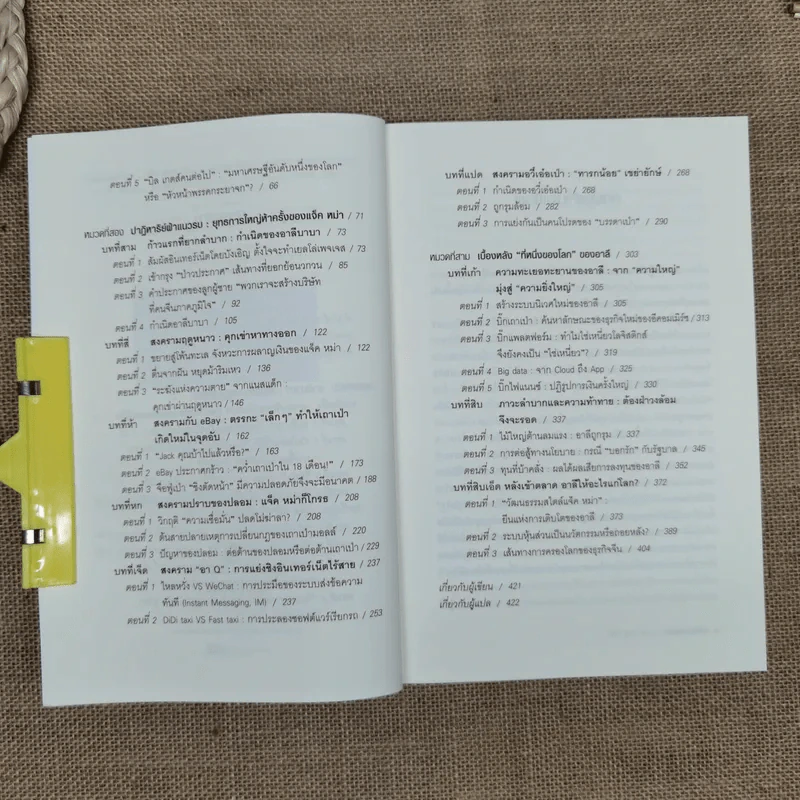 ตอนที่ 5 "บิล เกตส์คนต่อไป" : "มหาเศรษฐีอันดับหนึ่งของโลก"
หรือ "หัวหน้าพรรคกระยาจก"? / 66
หมวดที่สอง ปาฏิหาริย์ฟ้าแนวรบ : ยุทธการใหญ่ห้าครั้งของแจ็ค หม่า / 71
บทที่สาม ก้าวแรกที่ยากลำบาก : กำเนิดของอาลีบาบา / 73
ตอนที่ 1 สัมผัสอินเทอร์เน็ตโดยบังเอิญ ตั้งใจจะทำเยลโล่เพจเจส / 73
ตอนที่ 2 เข้ากรุง "ป่าวประกาศ" เส้นทางที่ยอกย้อนวกวน / 85
ตอนที่ 3 คำประกาศของลูกผู้ชาย "พวกเราจะสร้างบริษัท
ที่คนจีนภาคภูมิใจ" / 92
ตอนที่ 4 กำเนิดอาลีบาบา / 105
บทที่สี่ สงครามฤดูหนาว : คุกเข่าหาทางออก / 122
ตอนที่ 1 ขยายสู่โพ้นทะเล จังหวะการผลาญเงินของแจ็ค หม่า / 122
ตอนที่ 2 ตื่นจากฝัน หยุดม้าริมเหว / 136
ตอนที่ 3 "ระฆังแห่งความตาย" จากแนสแด็ก :
คุกเข่าผ่านฤดูหนาว / 146
บทที่ห้า สงครามกับ eBay : ตรรกะ "เล็กๆ" ทำให้เถาเป่า
เกิดใหม่ในจุดอับ / 162
ตอนที่ 1 "Jack คุณบ้าไปแล้วหรือ?" / 163
ตอนที่ 2 eBay ประกาศกร้าว : "คว่ำเถาเป่าใน 18 เดือน!" / 173
ตอนที่ 3 จือฟู่เป่า "ชิงตัดหน้า" มีความปลอดภัยจึงจะมีอนาคต / 188
บทที่หก สงครามปราบของปลอม : แจ็ค หม่าก็โกรธ / 208
ตอนที่ 1 วิกฤติ "ความเชื่อมั่น" ปลดไม่ฆ่าลา? / 208
ตอนที่ 2 ต้นสายปลายเหตุการเปลี่ยนกฎของเถาเป่ามอลล์ / 220
ตอนที่ 3 ปัญหาของปลอม : ต่อต้านของปลอมหรือต่อต้านเถาเป่า / 229
บทที่เจ็ด สงคราม "อา Q" : การแย่งชิงอินเทอร์เน็ตไร้สาย
ตอนที่ 1 ไหลหวั่ง VS WeChat : การประมือของระบบส่งข้อความ
ทันที (Instant Messaging, IM) / 237
ตอนที่ 2 DiDi taxi VS Fast taxi : การประลองซอฟต์แวร์เรียกรถ / 253
บทที่แปด สงครามอวี๋เอ๋อเป่า : "ทารกน้อย" เขย่ายักษ์ / 268
ตอนที่ 1 กำเนิดของอวี๋เอ๋อเป่า / 268
ตอนที่ 2 ถูกรุมล้อม / 282
ตอนที่ 3 การแย่งกันเป็นคนโปรดของ "บรรดาเป่า" / 290
หมวดที่สาม เบื้องหลัง "ที่หนึ่งของโลก" ของอาลี / 303
บทที่เก้า ความทะเยอทะยานของอาลี : จาก "ความใหญ่"
มุ่งสู่ "ความยิ่งใหญ่" / 305
ตอนที่ 1 สร้างระบบนิเวศใหม่ของอาลี / 305
ตอนที่ 2 บิ๊กเถาเป่า : ค้นหาลักษณะของธุรกิจใหม่ของอีคอมเมิร์ซ / 313
ตอนที่ 3 บิ๊กแพลตฟอร์ม : ทำไมไช่เหนี่ยวโลจิสติกส์
จึงยังคงเป็น "ไช่เหนี่ยว"? / 319
ตอนที่ 4 Big data : จาก Cloud ถึง App / 325
ตอนที่ 5 บิ๊กไฟแนนซ์ : ปฏิรูปการเงินครั้งใหญ่ / 330
บทที่สิบ ภาวะลำบากและความท้าทาย : ต้องฝ่าวงล้อม
จึงจะรอด / 337
ตอนที่ 1 ไม้ใหญ่ต้านลมแรง : อาลีถูกรุม / 337
ตอนที่ 2 การต่อสู้ทางนโยบาย : กรณี "บอกรัก" กับรัฐบาล / 345
ตอนที่ 3 หุ้นที่บ้าคลั่ง : ผลได้ผลเสียการลงทุนของอาลี / 352
บทที่สิบเอ็ด หลังเข้าตลาด อาลีให้อะไรแก่โลก? / 372
ตอนที่ 1 "วัฒนธรรมสไตล์แจ็ค หม่า" :
ยีนแห่งการเติบโตของอาลี / 373
ตอนที่ 2 ระบบหุ้นส่วนเป็นนวัตกรรมหรือถอยหลัง? / 389
ตอนที่ 3 เส้นทางการครองโลกของธุรกิจจีน / 404
เกี่ยวกับผู้เขียน / 421
เกี่ยวกับผู้แปล / 422